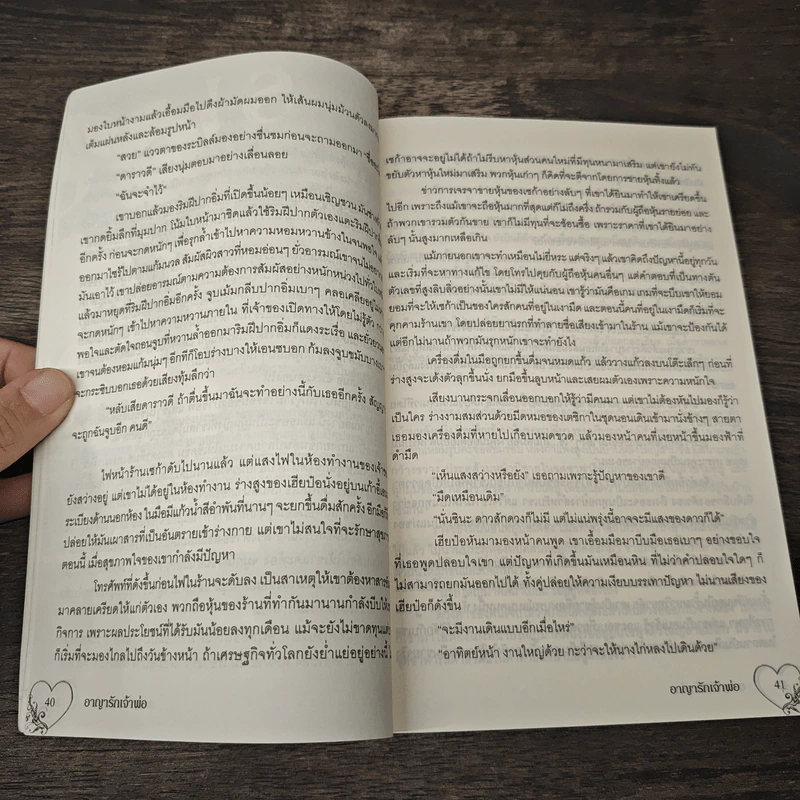 มองใบหน้างามแล้วเอื้อมมือไปดึงผ้ามัดผมออก ให้เส้นผมนุ่มม้วนตัวลงมา
เต็มแผ่นหลังและล้อมรูปหน้า
“สวย” แววตาของระบิลล์มองอย่างชื่นชมก่อนจะถามออกมา
“ดาราวดี” เสียงนุ่มตอบมาอย่างเลื่อนลอย
“ฉันจะจำไว้”
เขาบอกแล้วมองริมฝีปากอิ่มที่เปิดขึ้นน้อยๆ เหมือนเชิญชวน
เขากดยิ้มลึกที่มุมปาก โน้มใบหน้ามาชิดแล้วใช้ริมฝีปากตัวเองแตะริมฝีปาก
อีกครั้ง ก่อนจะกดหนักๆ เพื่อรุกล้ำเข้าไปหาความหอมหวานข้างในจนพอใจ
ออกมาไซร้ไปตามแก้มนวล สัมผัสผิวสาวที่หอมอ่อนๆ ยั่วอารมณ์เขาจน
มันเอาไว้ เขาปล่อยอารมณ์ตามความต้องการสัมผัสอย่างหนักหน่วงไปทั่ว
แล้วมาหยุดที่ริมฝีปากอิ่มอีกครั้ง จูบเม้มกลีบปากอิ่มเบาๆ คลอเคลียอยู่
จะกดหนักๆ เข้าไปหาความหวานภายใน ที่เจ้าของเปิดทางให้โดยไม่รู้ตัว
พอใจและตัดใจถอนจูบที่หวานล้ำออกมาริมฝีปากอิ่มก็แดงระเรื่อ และยั่วยวน
เขาจนต้องหอมแก้มนุ่มๆ อีกทีก็โอบร่างบางให้เอนซบอก ก้มลงจูบขมับบาง
จะกระซิบบอกเธอด้วยเสียงทุ้มลึกว่า
“หลับเสียดาราวดี ถ้าตื่นขึ้นมาฉันจะทำอย่างนี้กับเธออีกครั้ง
จะถูกฉันจูบอีก คนดี”
ไฟหน้าร้านเซก้าดับไปนานแล้ว แต่แสงไฟในห้องทำงานของเจ้าของ
ยังสว่างอยู่ แต่เขาไม่ได้อยู่ในห้องทำงาน ร่างสูงของเฮียป๋อนั่งอยู่บนเก้าอี้
ระเบียงด้านนอกห้อง ในมือมีแก้วน้ำสีอำพันที่นานๆ จะยกขึ้นดื่มสักครั้ง อีกมือ
ปล่อยให้มันเผาสารที่เป็นอันตรายเข้าร่างกาย แต่เขาไม่สนใจที่จะรักษาสุขภาพ
ตอนนี้ เมื่อสุขภาพใจของเขากำลังมีปัญหา
โทรศัพท์ที่ดังขึ้นก่อนไฟในร้านจะดับลง เป็นสาเหตุให้เขาต้องหาสาร
มาคลายเครียดให้แก่ตัวเอง พวกถือหุ้นของร้านที่ทำกันมานานกำลังบีบให้
กิจการ เพราะผลประโยชน์ที่ได้รับมันน้อยลงทุกเดือน แม้จะยังไม่ขาดทุน
ก็เริ่มที่จะมองไกลไปถึงวันข้างหน้า ถ้าเศรษฐกิจทั่วโลกยังย่ำแย่อยู่อย่างนี้
40 อาญารักเจ้าพ่อ
เซก้าอาจจะอยู่ไม่ได้ถ้าไม่รีบหาหุ้นส่วนคนใหม่ที่มีทุนหนามาเสริม แต่เขายังไม่ทัน
ขยับตัวหาหุ้นใหม่มาเสริม พวกหุ้นเก่าๆ ก็คิดที่จะตีจากโดยการขายหุ้นทิ้งแล้ว
ข่าวการเจรจาขายหุ้นของเซก้าอย่างลับๆ ที่เขาได้ยินมาทำให้เขาเครียดขึ้น
ไปอีก เพราะถึงแม้เขาจะถือหุ้นมากที่สุดแต่ก็ไม่ถึงครึ่ง ถ้ารวมกับผู้ถือหุ้นรายย่อย และ
ถ้าพวกเขารวมตัวกันขาย เขาก็ไม่มีทุนที่จะช้อนซื้อ เพราะราคาที่เขาได้ยินมาอย่าง
ลับๆ นั้นสูงมากเหลือเกิน
แม้ภายนอกเขาจะทำเหมือนไม่ยี่หระ แต่จริงๆ แล้วเขาคิดถึงปัญหานี้อยู่ทุกวัน
และเริ่มที่จะหาทางแก้ไข โดยโทรไปคุยกับผู้ถือหุ้นคนอื่นๆ แต่คำตอบที่เป็นทางตัน
ตัวเลขที่สูงลิบลิ่วอย่างนั้นเขาไม่มีให้แน่นอน เขารู้ว่ามันคือเกม เกมที่จะบีบเขาให้ยอม
ยอมที่จะให้เซก้าเป็นของใครสักคนที่อยู่ในเงามืด และตอนนี้คนที่อยู่ในเงามืดก็เริ่มที่จะ
คุกคามร้านเขา โดยปล่อยยานรกที่ทำลายชื่อเสียงเข้ามาในร้าน แม้เขาจะป้องกันได้
แต่อีกไม่นานถ้าพวกมันรุกหนักเขาจะทำยังไง
เครื่องดื่มในมือถูกยกขึ้นดื่มจนหมดแก้ว แล้ววางแก้วลงบนโต๊ะเล็กๆ ก่อนที่
ร่างสูงจะเด้งตัวลุกขึ้นนั่ง ยกมือขึ้นลูบหน้าและเสยผมตัวเองเพราะความหนักใจ
เสียงบานกระจกเลื่อนออกบอกให้รู้ว่ามีคนมา แต่เขาไม่ต้องหันไปมองก็รู้ว่า
เป็นใคร ร่างงามสมส่วนด้วยมีดหมอของเตซิกาในชุดนอนเดินเข้ามานั่งข้างๆ สายตา
เธอมองเครื่องดื่มที่หายไปเกือบหมดขวด แล้วมองหน้าคนที่เงยหน้าขึ้นมองฟ้าที่
ดำมืด
“เห็นแสงสว่างหรือยัง” เธอถามเพราะรู้ปัญหาของเขาดี
“มืดเหมือนเดิม”
“นั่นซินะ ดาวสักดวงก็ไม่มี แต่ไม่แน่พรุ่งนี้อาจจะมีแสงของดาวก็ได้”
เฮียป๋อหันมามองหน้าคนพูด เขาเอื้อมมือมาบีบมือเธอเบาๆ อย่างขอบใจ
ที่เธอพูดปลอบใจเขา แต่ปัญหาที่เกิดขึ้นมันเหมือนหิน ที่ไม่ว่าคำปลอบใจใดๆ ก็
ไม่สามารถยกมันออกไปได้ ทั้งคู่ปล่อยให้ความเงียบบรรเทาปัญหา ไม่นานเสียงของ
เฮียป๋อก็ดังขึ้น
“จะมีงานเดินแบบอีกเมื่อไหร่”
“อาทิตย์หน้า งานใหญ่ด้วย กะว่าจะให้นางไก่หลงไปเดินด้วย”
อาญารักเจ้าพ่อ 41